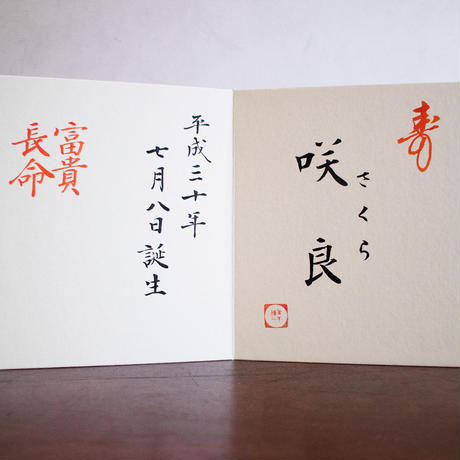 寿
咲良
さくら
平成三十年
七月八日誕生
富貴
長命